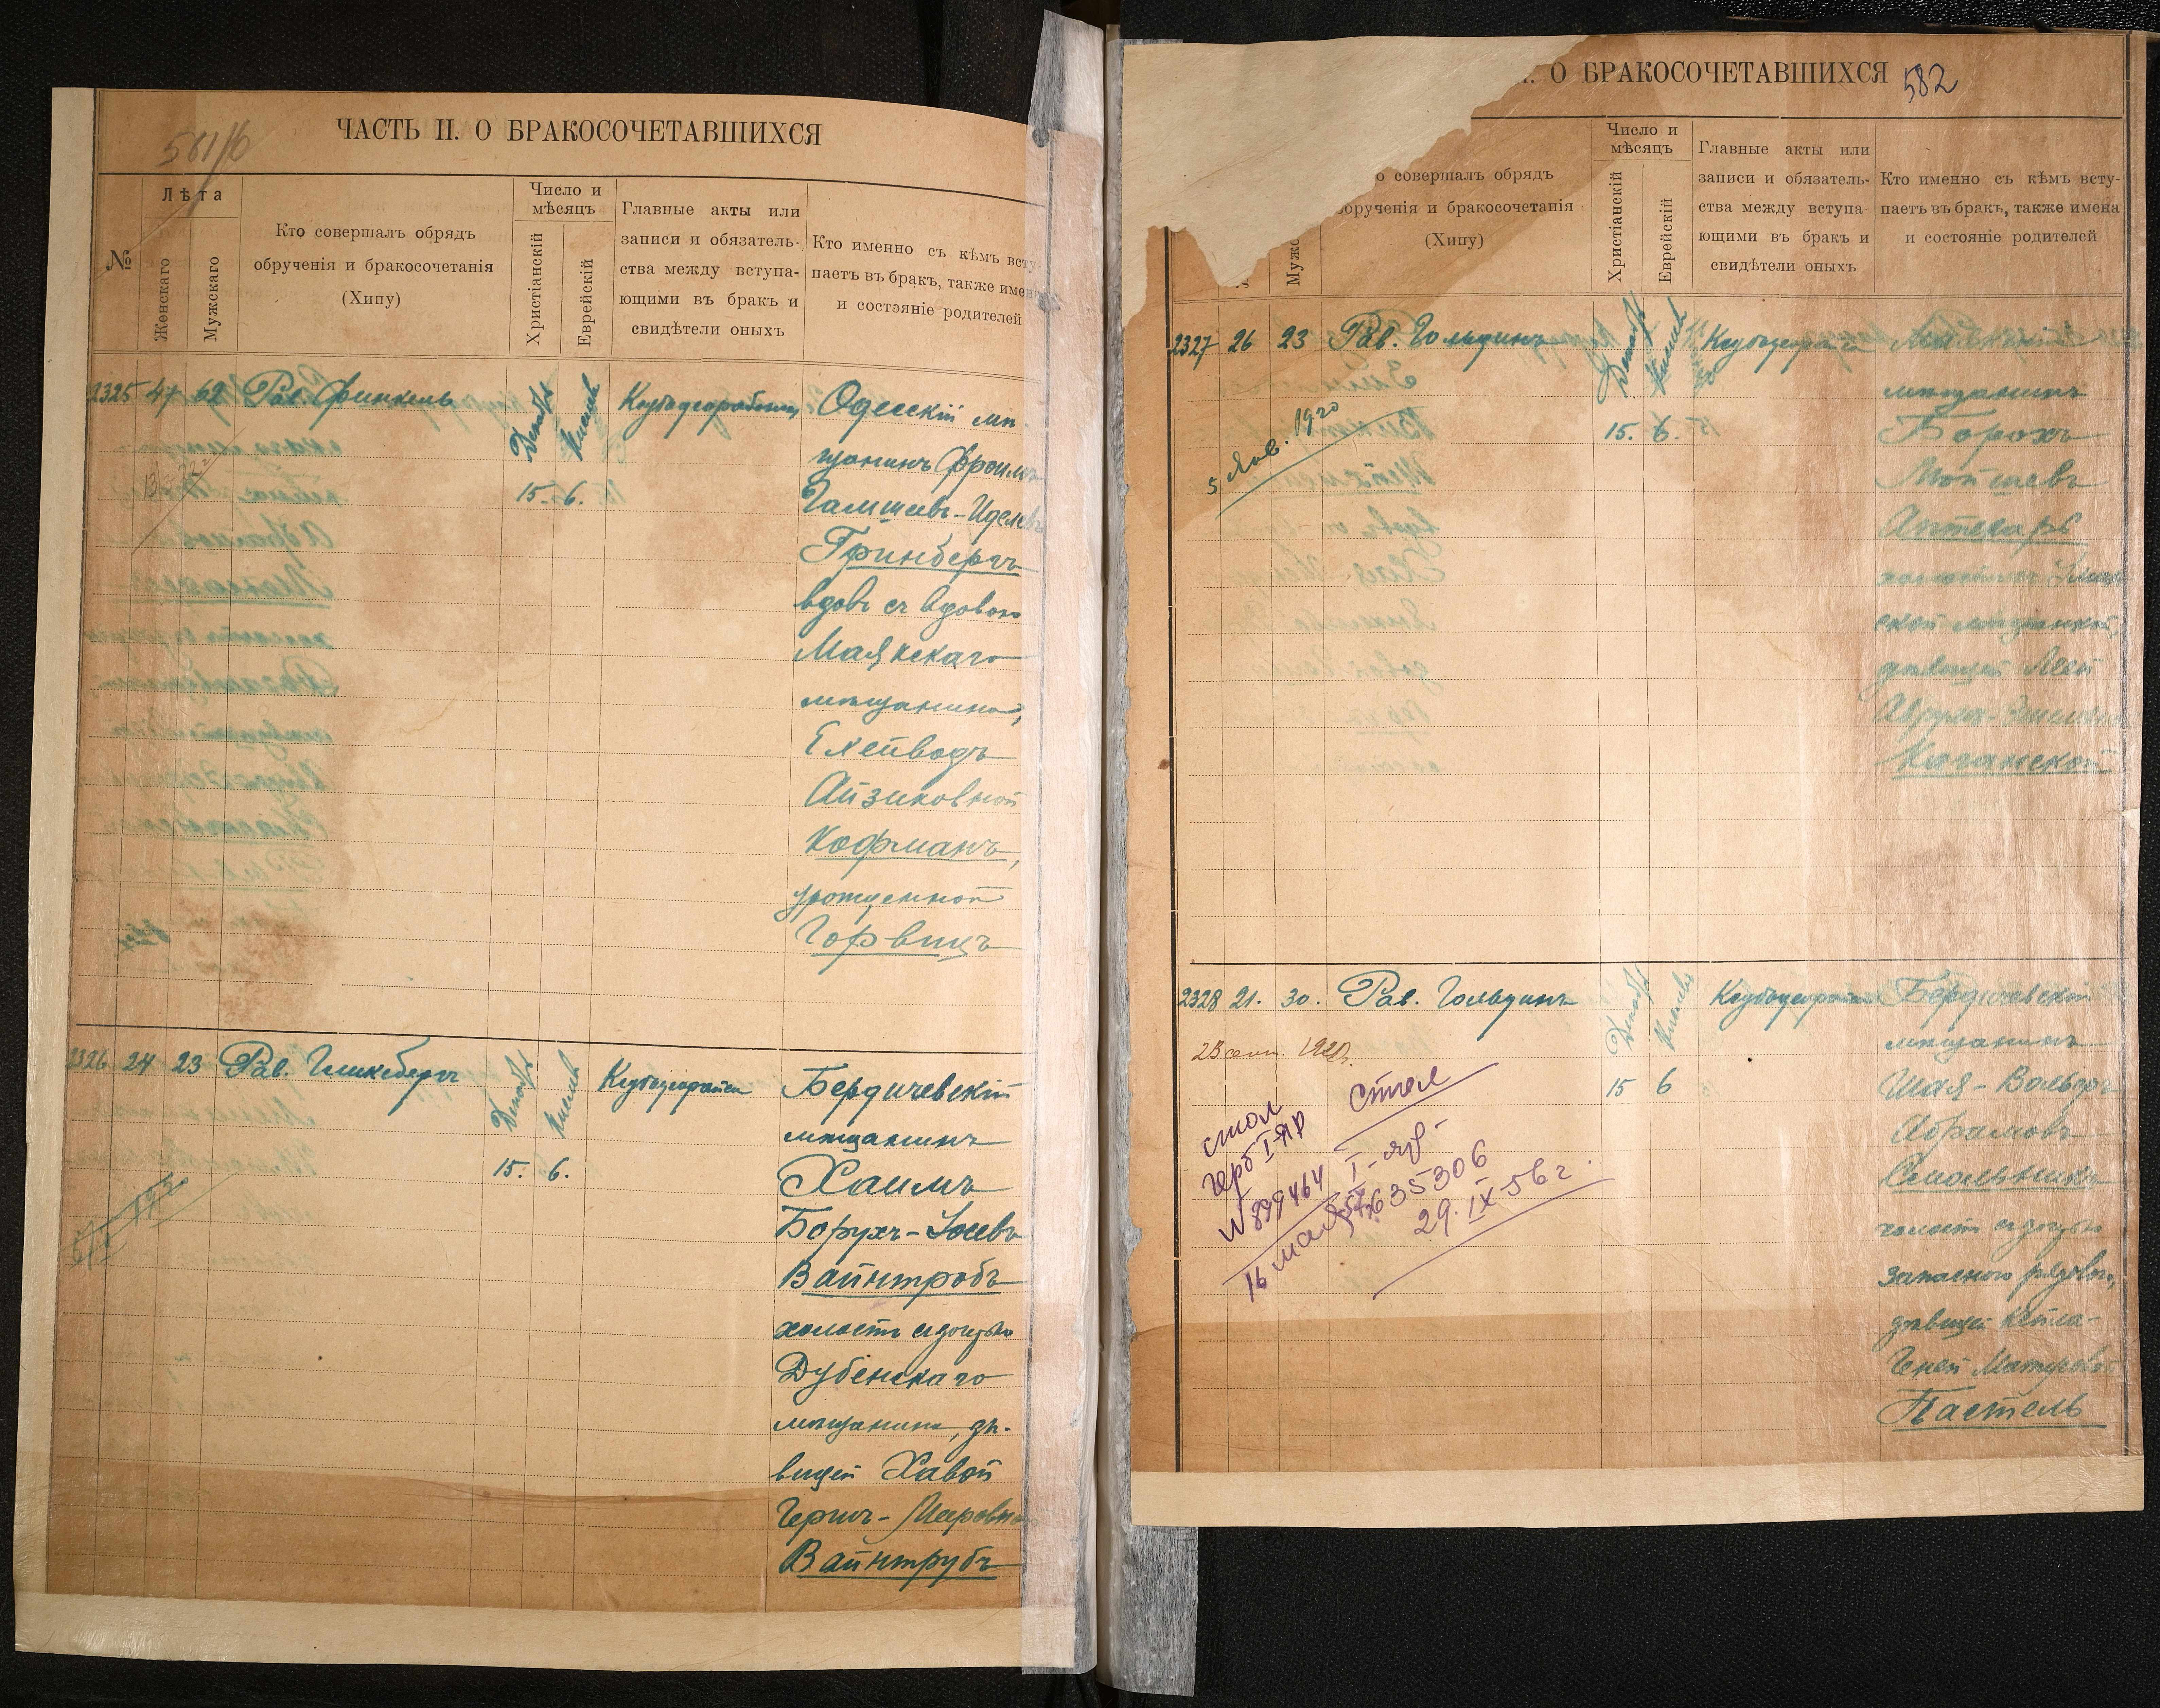 561/б
ЧАСТЬ II. О БРАКОСОЧЕТАВШИХСЯ
№
Лѣта
Женскаго
Мужскаго
Кто совершалъ обрядъ
обрученія и бракосочетанія
(Хипу)
Число и
мѣсяцъ
Христіанскій
Еврейскій
Главные акты или
записи и обязатель-
ства между вступа-
ющими въ бракъ и
свидѣтели оныхъ
Кто именно съ кѣмъ всту-
паетъ въ бракъ, также имен
и состояніе родителей
2325 47 62 Рав. Финкель Декабр Кислев Одесскій мѣ-
щанинъ Фроимъ
15. 6.
Иделевъ
Гринбергъ
вдовъ съ вдовою
Маякскаго
мѣщанина,
Ейгой
Айзиковной
Кофманъ,
урожденной
Горвицъ
2326 24 23 Рав. Гликсбергъ Декабр Кислев Бердичевскій
мѣщанинъ
15. 6. Хаимъ
Борухъ-Іосевъ
Вайнтробъ
холостъ съ дочерью
Дубенскаго
мѣщанина, дѣ-
вицей Хавой
Гершъ-Меировной
Вайнтрубъ
О БРАКОСОЧЕТАВШИХСЯ
582
о совершалъ обрядъ
обрученія и бракосочетанія
(Хипу)
Число и
мѣсяцъ
Христіанскій
Еврейскій
Главные акты или
записи и обязатель-
ства между вступа
ющими въ бракъ и
свидѣтели оныхъ
Кто именно съ кѣмъ всту-
паетъ въ бракъ, также имена
и состояніе родителей
2327 26 23 Рав. Гольдинъ Декабр Кислев
мѣщанинъ
15. 6. Борохъ
Мойшевъ
Аптекарь
5 Янв. 1920
ской мѣщанкой,
дѣвицей Леей
Каганской
2328 21. 30. Рав. Гольдинъ Декабр Кислев Бердичевскій
мѣщанинъ
15 6 Шая-Вольфъ
Абрамовъ
Смольникъ
холостъ съ дочерью
запаснаго рядового,
дѣвицей Кейла-
Геней
Пастель
23 сент. 1920.
стол
герб I-ЯР
N 899464
16 мая
Стол
I-яр-
№635306
29.IX-56 г.